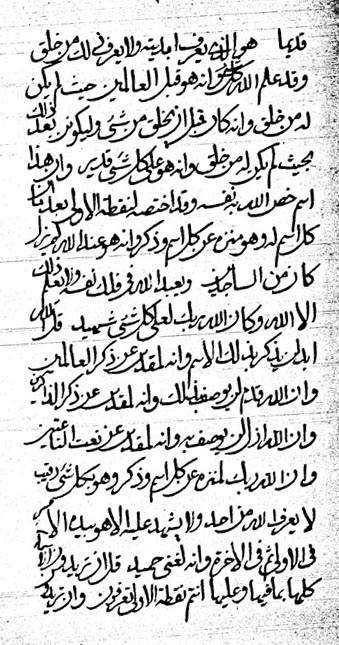 قديما هو الذي يعرف ابديته ولا يعرفن لك من خلق
وقد علم الله كلشئ وانه هو قبل العالمين حيث لم يكن
له من خلق وانه كان قبل ان يخلق من شئ وليكونن بعد ذلك
بحيث لم يكن له من خلق وانه هو على كل شئ قدير وان هذا
اسم خص الله به نفسه وقد اختصه لنقطة الاولى بعد
كل اسم له وهو منزه عن كل اسم وذكر وانه هو عند الله
كان من الساجدين ويعبد الله في ولا يعلم ذلك
الا الله وكان الله ربك لعلى كل شئ شهيد قل
ابدا لن يذكر بذلك الاسم وانه لمقدس عن ذكر العالمين
وان الله قدم لن يوصف بذلك وانه لمقدس عن ذكر الذاكرين
وان الله ازل لن يوصف به وانه لمقدس عن نعت الناعتين
وان الله ربك لمنزه عن كل اسم وذكر وهو بكل شئ رقيب
لا يعرف الله من احد ولا يشهد عليه الا هو بيده الامر
في الاولى ثم في الاخرة وانه لغنى حميد قل ان تريدون
كلها بما فيها وعليها انتم نقطة الاولى تعرفون وان تريدن